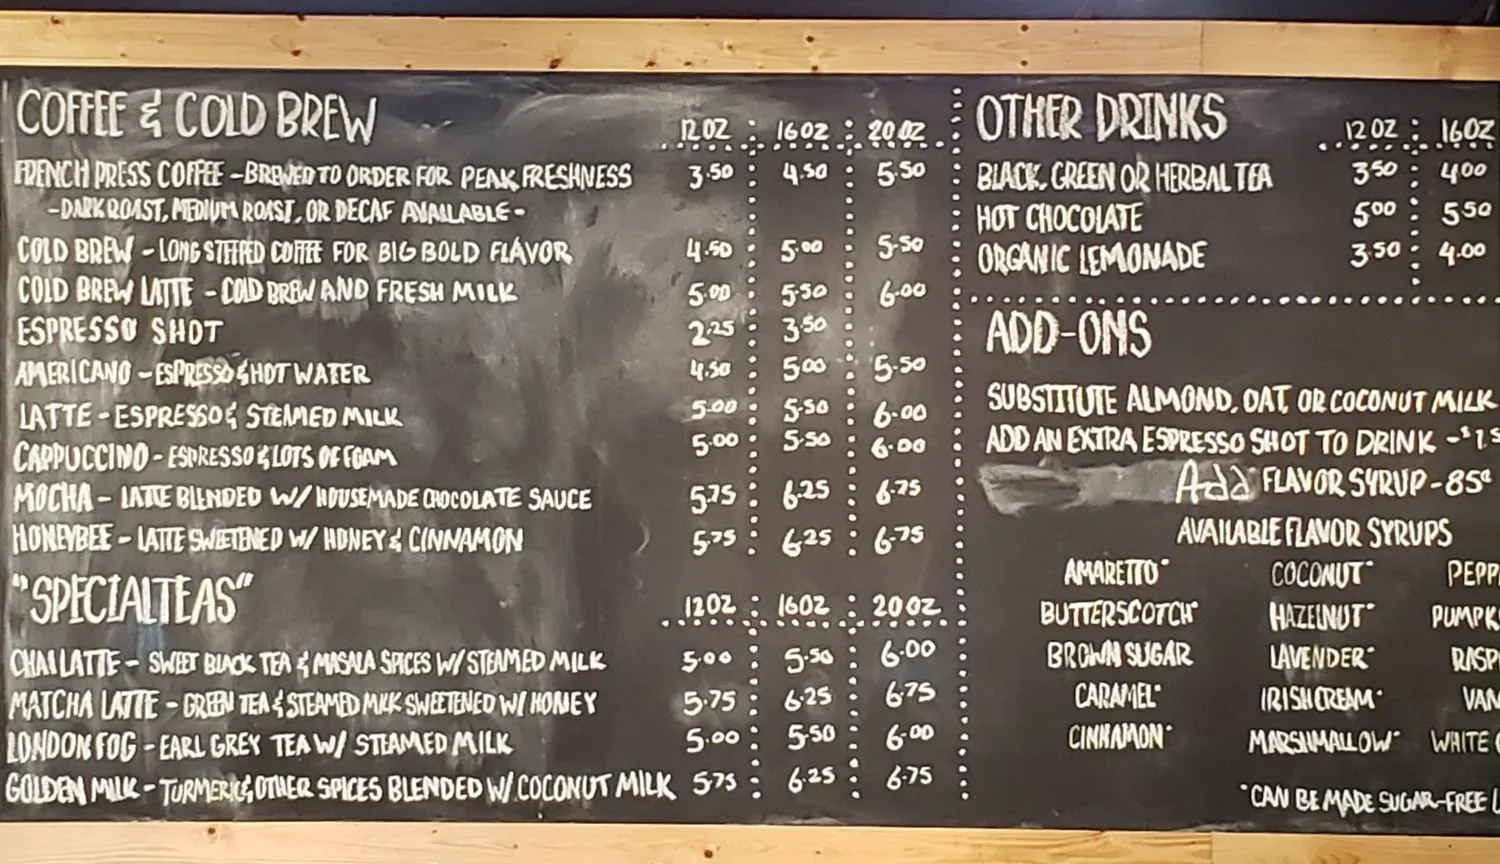 COFFEE & COLD BREW 12 OZ 16 OZ 20 OZ
FRENCH PRESS COFFEE - BREWED TO ORDER FOR PEAK FRESHNESS 3.50 4.50 5.50
- DARK ROAST, MEDIUM ROAST, OR DECAF AVAILABLE -
COLD BREW - LONG STEEPED COFFEE FOR BIG BOLD FLAVOR 4.50 5.00 5.50
COLD BREW LATTE - COLD BREW AND FRESH MILK 5.00 5.50 6.00
ESPRESSO SHOT 2.25 3.50
AMERICANO - ESPRESSO & HOT WATER 4.50 5.00 5.50
LATTE - ESPRESSO & STEAMED MILK 5.00 5.50 6.00
CAPPUCCINO - ESPRESSO & LOTS OF FOAM 5.00 5.50 6.00
MOCHA - LATTE BLENDED W/ HOUSEMADE CHOCOLATE SAUCE 5.75 6.25 6.75
HONEYBEE - LATTE SWEETENED W/ HONEY & CINNAMON 5.75 6.25 6.75
"SPECIALTEAS" 12 OZ 16 OZ 20 OZ
CHAI LATTE - SWEET BLACK TEA & MASALA SPICES W/ STEAMED MILK 5.00 5.50 6.00
MATCHA LATTE - GREEN TEA & STEAMED MILK SWEETENED W/ HONEY 5.75 6.25 6.75
LONDON FOG - EARL GREY TEA W/ STEAMED MILK 5.00 5.50 6.00
GOLDEN MILK - TURMERIC & OTHER SPICES BLENDED W/ COCONUT MILK 5.75 6.25 6.75
OTHER DRINKS 12 OZ 16 OZ
BLACK, GREEN OR HERBAL TEA 3.50 4.00
HOT CHOCOLATE 5.00 5.50
ORGANIC LEMONADE 3.50 4.00
ADD-ONS
SUBSTITUTE ALMOND, OAT, OR COCONUT MILK
ADD AN EXTRA ESPRESSO SHOT TO DRINK -
Add FLAVOR SYRUP - 85¢
AVAILABLE FLAVOR SYRUPS
AMARETTO* COCONUT* PEPP
BUTTERSCOTCH* HAZELNUT* PUMPK
BROWN SUGAR LAVENDER* RASP
CARAMEL* IRISH CREAM* VAN
CINNAMON* MARSHMALLOW* WHITE
*CAN BE MADE SUGAR-FREE